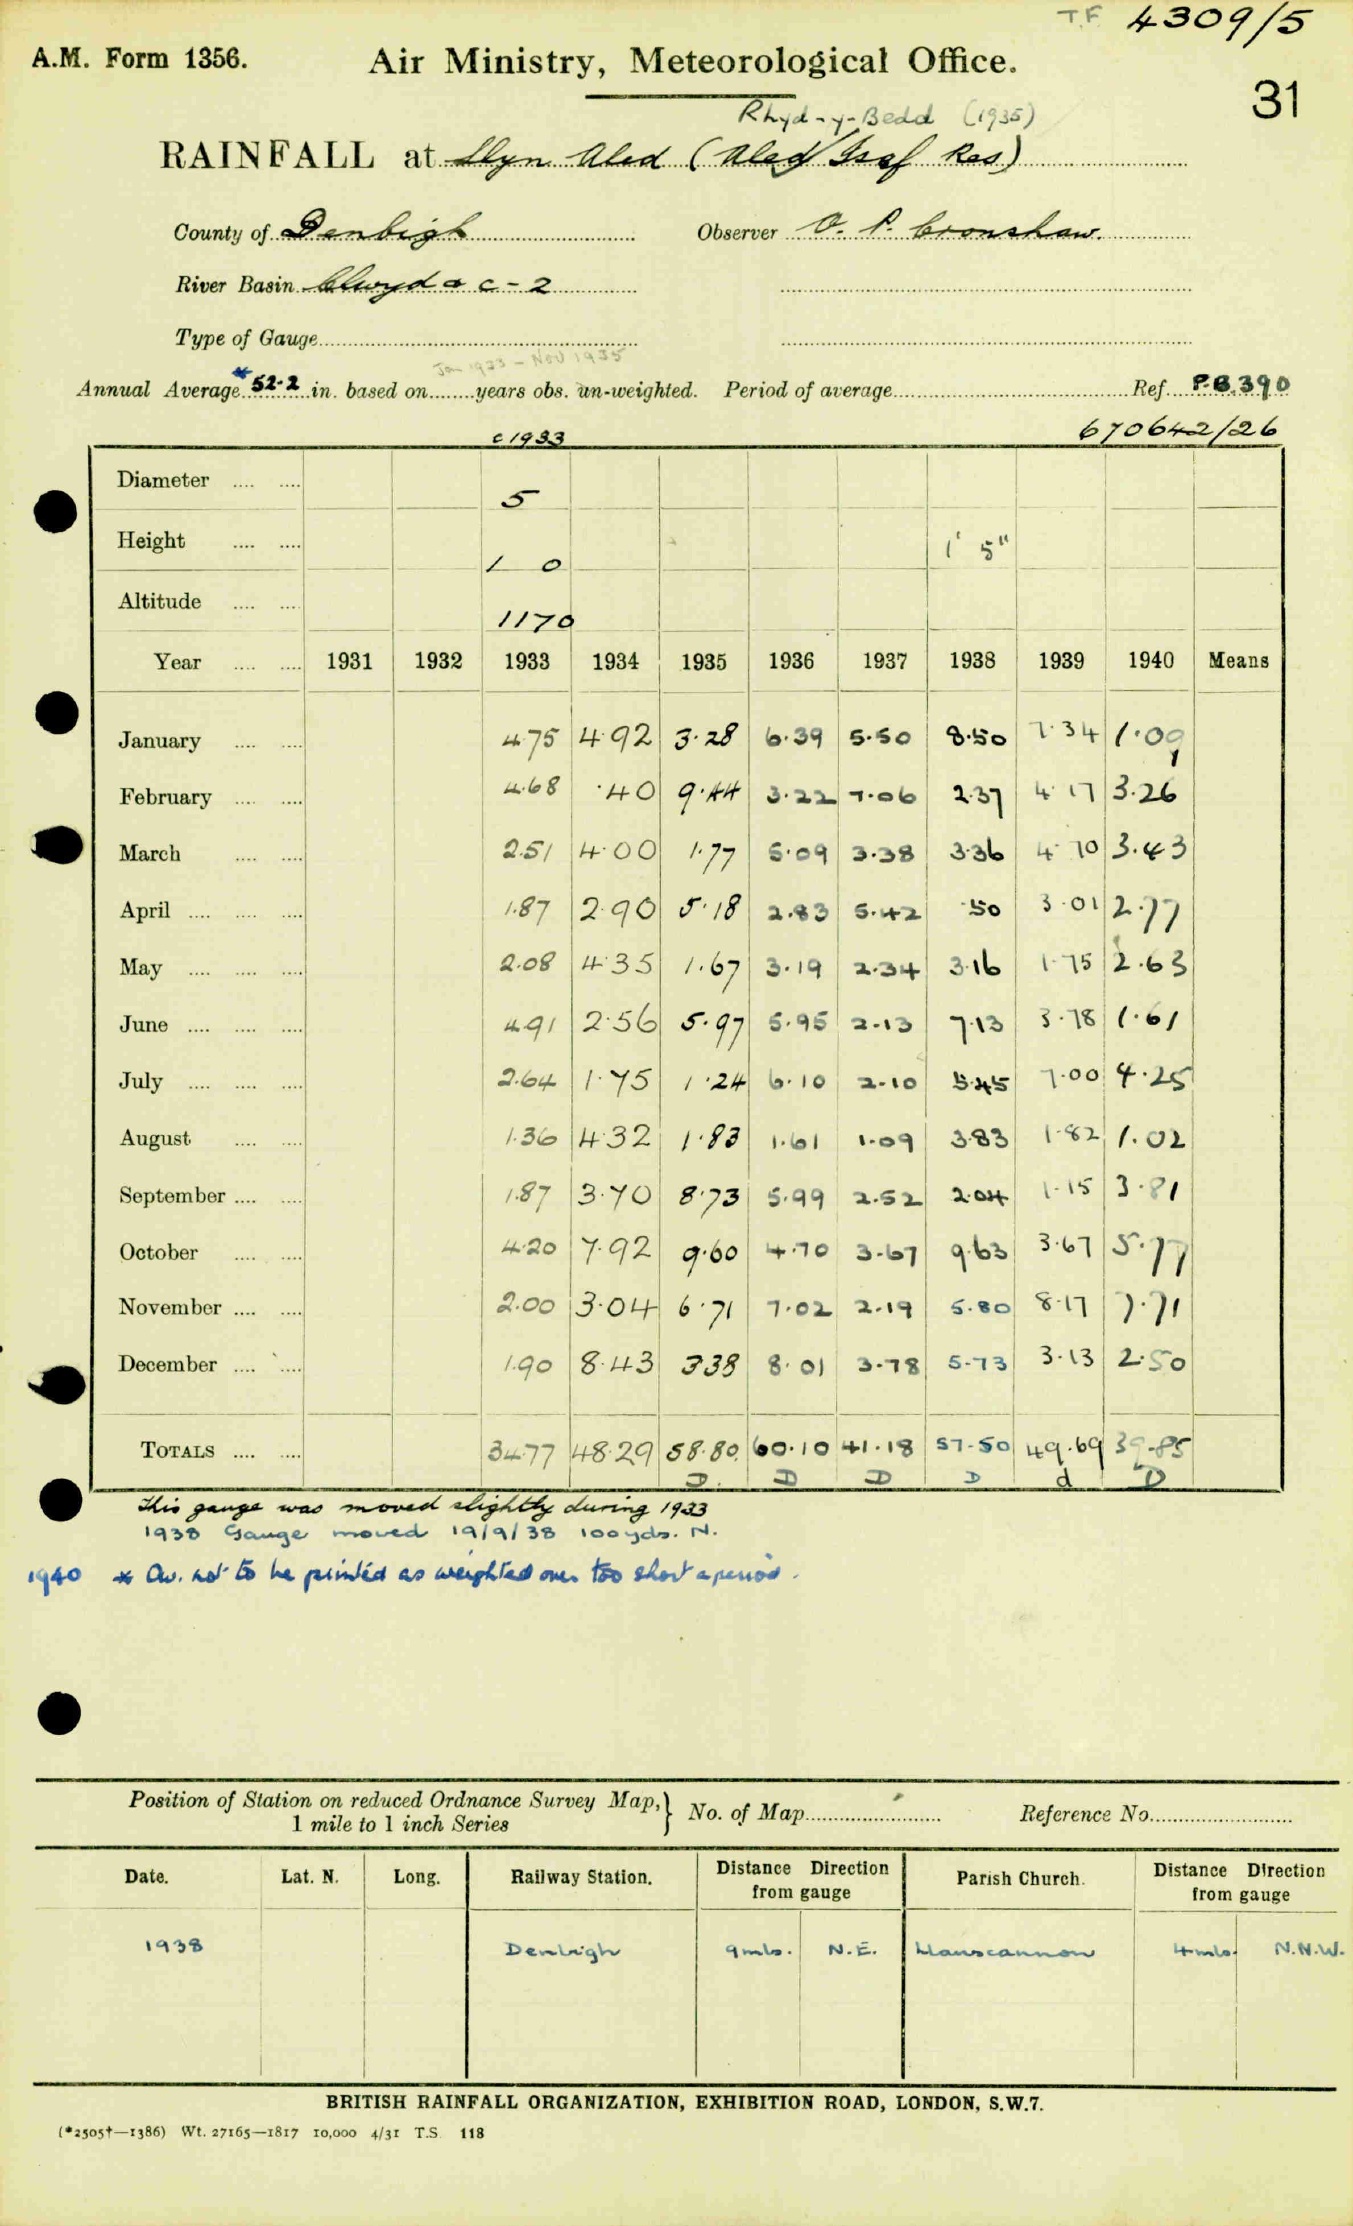 T.F. 4309/5
A.M. Form 1356. Air Ministry, Meteorological Office.
31
Rhyd-y-Bedd (1935)
RAINFALL at Llyn Aled (Aled Isaf Res)
County of Denbigh Observer O. P. Cronshaw.
River Basin Clwyd & C - 2
Type of Gauge
Jan 1933 - Nov 1935
Annual Average * 52.2 in. based on ........ years obs. un-weighted. Period of average ........ Ref. P.B.390
670642/26
c 1933
Diameter 5
Height 1 0 1' 5"
Altitude 1170
Year 1931 1932 1933 1934 1935 1936 1937 1938 1939 1940 Means
January 4.75 4.92 3.28 6.39 5.50 8.50 7.34 1.09
February 4.68 .40 9.44 3.22 7.06 2.37 4.17 3.26
March 2.51 4.00 1.77 5.09 3.38 3.36 4.70 3.43
April 1.87 2.90 5.18 2.83 5.42 .50 3.01 2.77
May 2.08 4.35 1.67 3.19 2.34 3.16 1.75 2.63
June 4.91 2.56 5.97 5.95 2.13 7.13 3.78 1.61
July 2.64 1.75 1.24 6.10 2.10 5.45 7.00 4.25
August 1.36 4.32 1.83 1.61 1.09 3.83 1.82 1.02
September 1.87 3.70 8.73 5.99 2.52 2.04 1.15 3.81
October 4.20 7.92 9.60 4.70 3.67 9.63 3.67 5.77
November 2.00 3.04 6.71 7.02 2.19 5.80 8.17 7.71
December 1.90 8.43 3.38 8.01 3.78 5.73 3.13 2.50
TOTALS 34.77 48.29 58.80 60.10 41.18 57.50 49.69 39.85
D. D D D d D
This gauge was moved slightly during 1933
1938 Gauge moved 19/9/38 100yds. N.
1940 * Av. not to be printed as weighted over too short a period.
Position of Station on reduced Ordnance Survey Map, } No. of Map Reference No.
1 mile to 1 inch Series
Date. Lat. N. Long. Railway Station. Distance Direction from gauge Parish Church. Distance Direction from gauge
1938 Denbigh 9mls. N.E. Llansannan 4mls. N.N.W.
BRITISH RAINFALL ORGANIZATION, EXHIBITION ROAD, LONDON, S.W.7.
(*2505†—1386) Wt. 27165—1817 10,000 4/31 T.S. 118